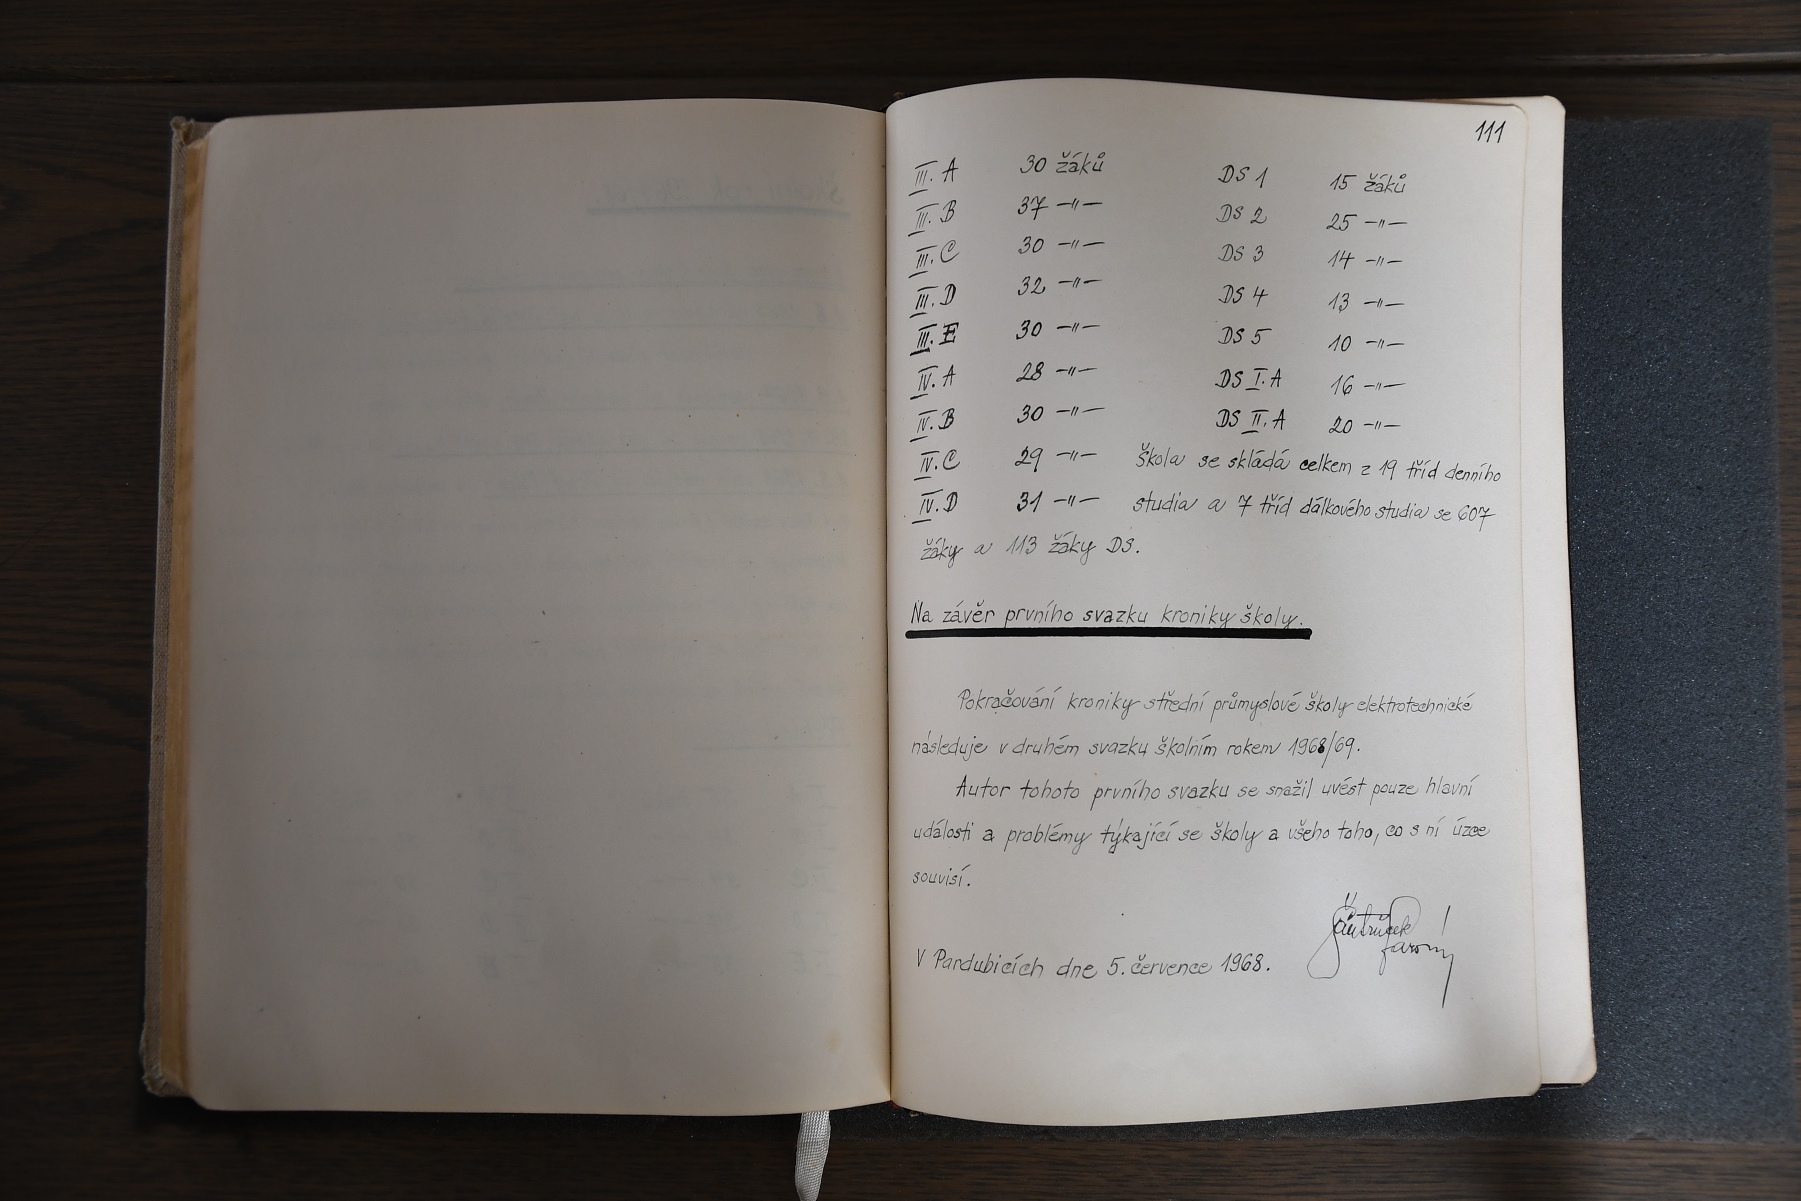 111
III. A 30 žáků DS 1 15 žáků
III. B 37 —"— DS 2 25 —"—
III. C 30 —"— DS 3 14 —"—
III. D 32 —"— DS 4 13 —"—
III. E 30 —"— DS 5 10 —"—
IV. A 28 —"— DS I. A 16 —"—
IV. B 30 —"— DS II. A 20 —"—
IV. C 29 —"— Škola se skládá celkem z 19 tříd denního
IV. D 31 —"— studia a 7 tříd dálkového studia se 607
žáky a 113 žáky DS.
Na závěr prvního svazku kroniky školy.
Pokračování kroniky střední průmyslové školy elektrotechnické
následuje v druhém svazku školním rokem 1968/69.
Autor tohoto prvního svazku se snažil uvést pouze hlavní
události a problémy týkající se školy a všeho toho, co s ní úzce
souvisí.
V Pardubicích dne 5. července 1968.